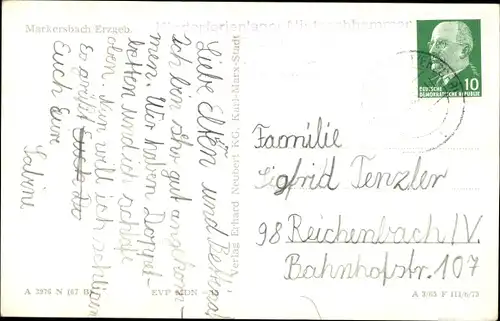 Markersbach/Erzgeb.
Liebe Eltern und Bettina!
Ich bin sehr gut angekom-
men. Wir haben Doppel-
betten und ich schlafe
oben. Nun will ich schließen
Es grüßt
Euch Eure
Sabine
Verlag Erhard Neubert KG, Karl-Marx-Stadt
10
DEUTSCHE
DEMOKRATISCHE REPUBLIK
Familie
Siegfrid Tenzler
98 Reichenbach/V.
Bahnhofstr. 107
A 2976 N (67 B)
EVP MDN
A 3/65 F 111/6/73